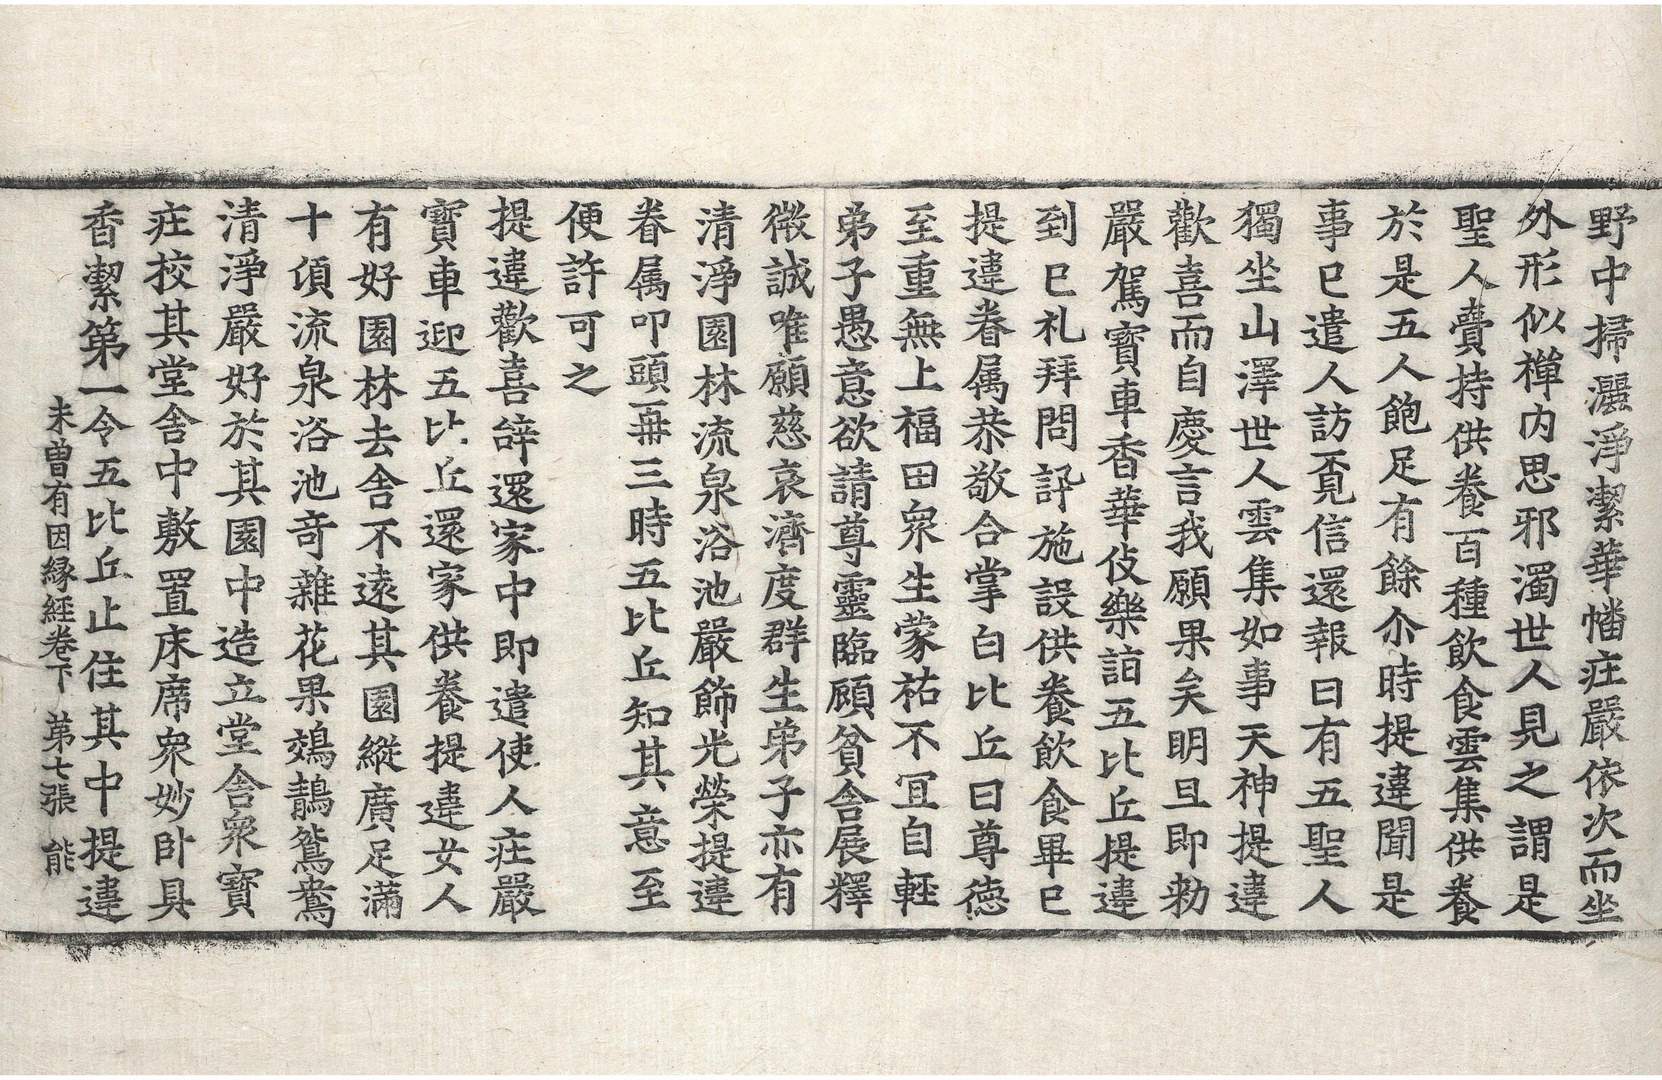 野中掃灑淨潔華幡庄嚴依次而坐
外形似禪内思邪濁世人見之謂是
聖人賷持供養百種飲食雲集供養
於是五人飽足有餘尒時提違聞是
事已遣人訪覔信還報曰有五聖人
獨坐山澤世人雲集如事天神提違
歡喜而自慶言我願果矣明旦即勑
嚴駕寶車香華伎樂詣五比丘提違
到已礼拜問訊施設供養飲食畢已
提違眷属恭敬合掌白比丘曰尊德
至重無上福田衆生蒙祐不冝自輕
弟子愚意欲請尊靈臨顧貧舍展釋
微誠唯願慈哀濟度群生弟子亦有
清淨園林流泉浴池嚴飾光榮提違
眷属叩頭再三時五比丘知其意至
便許可之
提違歡喜辝還家中即遣使人庄嚴
寶車迎五比丘還家供養提違女人
有好園林去舍不遠其園縱廣足滿
十頃流泉浴池奇雜花果鵁鶄鴛鴦
清淨嚴好於其園中造立堂舍衆寶
庄校其堂舍中敷置床席衆妙卧具
香潔第一令五比丘止住其中提違
未曽有因縁經卷下　第七張　能